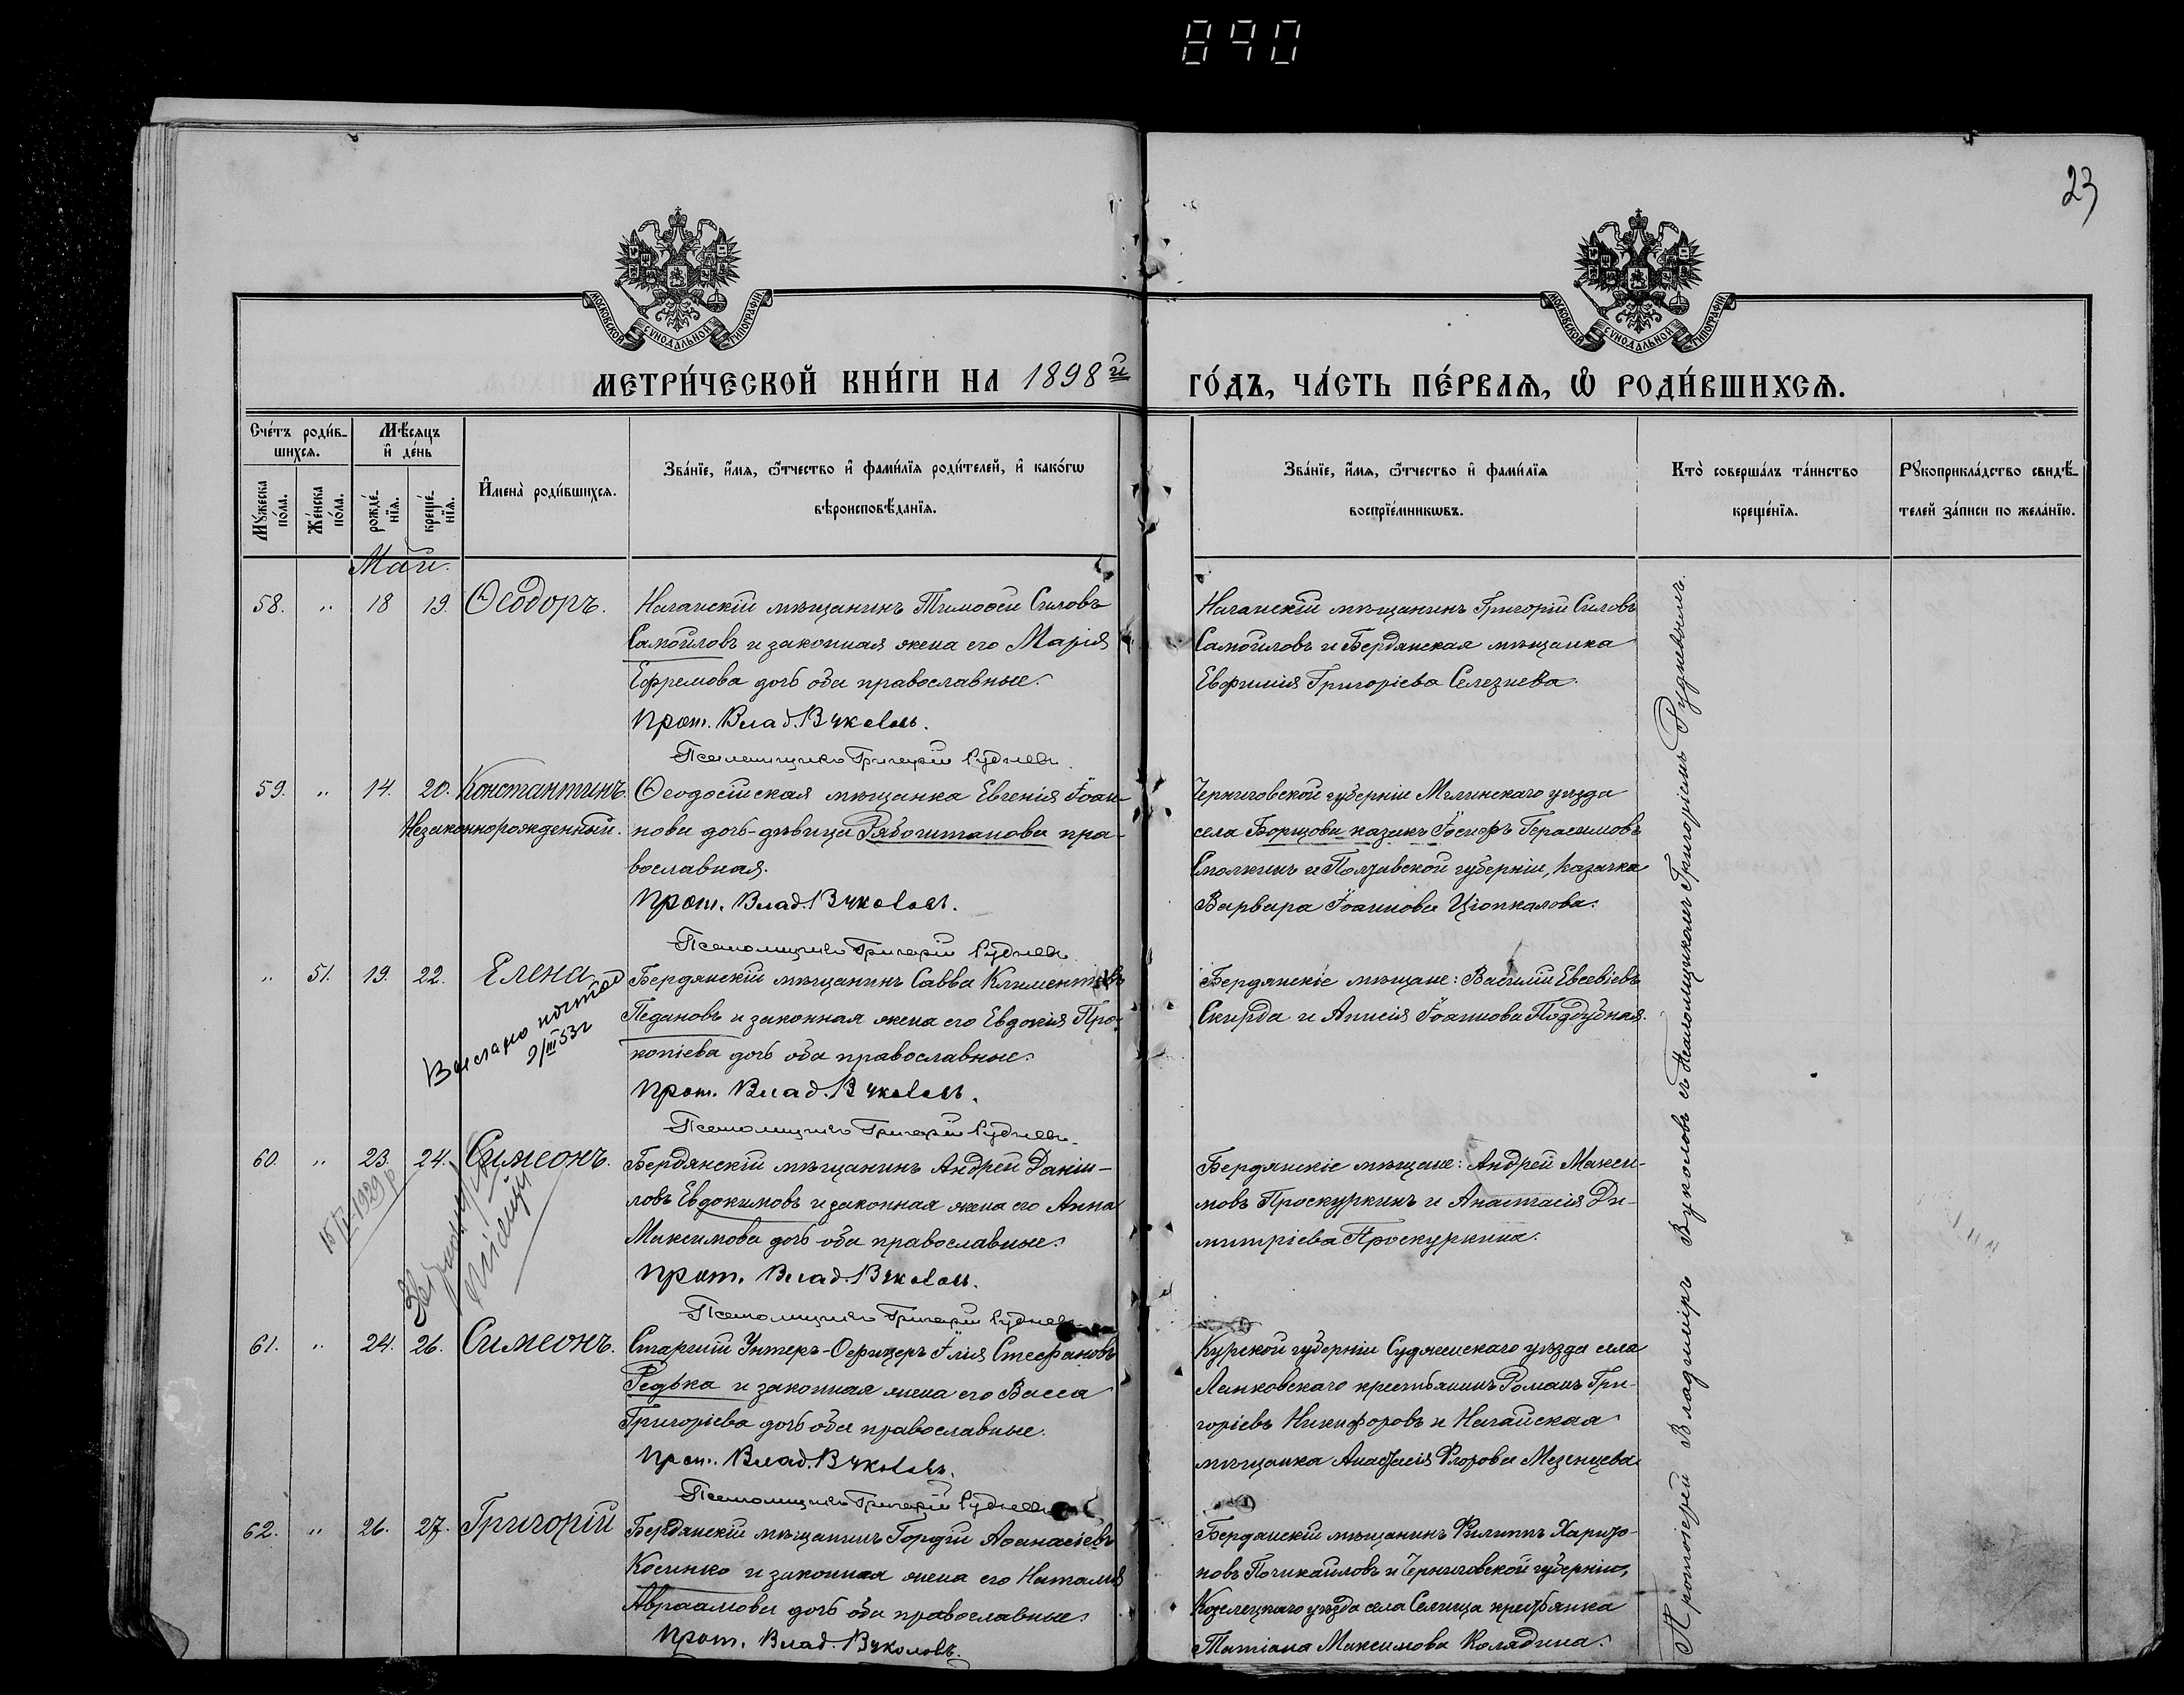 890
23
МОСКОВСКОЙ СѴНОДАЛЬНОЙ ТИПОГРАФІИ
МОСКОВСКОЙ СѴНОДАЛЬНОЙ ТИПОГРАФІИ
МЕТРИ́ЧЕСКОЙ КНИ́ГИ НА 1898й ГО́ДЪ, ЧА́СТЬ ПЕ́РВАѦ, Ѡ РОДИ́ВШИХСѦ.
Сче́тъ роди́в-
шихсѧ.
Мѣ́сѧцъ
и де́нь
Мꙋ́жеска
по́ла.
Же́нска
по́ла.
рожде́-
нїѧ.
креще́-
нїѧ.
Имена̀ роди́вшихсѧ.
Зва́нїе, и́мѧ, ѻ҆́тчество и фами́лїѧ роди́телей, и како́гѡ
вѣроисповѣ́данїѧ.
Зва́нїе, и́мѧ, ѻ҆́тчество и фами́лїѧ
воспрїе́мникѡвъ.
Кто̀ соверша́лъ та́инство
креще́нїѧ.
Рꙋкоприкла́дство свидѣ́-
телей за́писи по жела́нїю.
Май.
58. " 18 19. Ѳеодоръ.
Ногайскій мѣщанинъ Тимоѳей Силовъ
Самойловъ и законная жена его Марія
Ефремова дочь оба православные.
Прот. Влад. Вуколовъ.
Псаломщикъ Григорій Рудневъ.
Ногайскій мѣщанинъ Григорій Силовъ
Самойловъ и Бердянская мѣщанка
Евфимія Григоріева Селезнева.
59. " 14. 20. Константинъ.
Незаконнорожденный.
Ѳеодосійская мѣщанка Евгенія Іоан-
нова дочь-дѣвица Рябоштанова пра-
вославная.
Прот. Влад. Вуколовъ.
Псаломщикъ Григорій Рудневъ.
Черниговской губерніи Мглинскаго уѣзда
села Борщова казакъ Іосифъ Герасимовъ
Смолкинъ и Полтавской губерніи, казачка
Варвара Іоаннова Цюпкалова.
" 51. 19. 22. Елена
Выслано почтой
9/III 53г
Бердянскій мѣщанинъ Савва Климентіевъ
Педановъ и законная жена его Евдокія Про-
копіева дочь оба православные.
Прот. Влад. Вуколовъ.
Псаломщикъ Григорій Рудневъ.
Бердянскіе мѣщане: Василій Евсевіевъ
Скирда и Анисія Іоаннова Поддубная.
60. " 23. 24. Симеонъ.
Бердянскій мѣщанинъ Андрей Даніи-
ловъ Евдокимовъ и законная жена его Анна
Максимова дочь оба православные.
Прот. Влад. Вуколовъ.
Псаломщикъ Григорій Рудневъ.
Бердянскіе мѣщане: Андрей Макси-
мовъ Проскуркинъ и Анастасія Ди-
митріева Проскуркина.
61. " 24. 26. Симеонъ.
Старшій Унтеръ-Офицеръ Илія Стефановъ
Редька и законная жена его Васса
Григоріева дочь оба православные.
Прот. Влад. Вуколовъ.
Псаломщикъ Григорій Рудневъ.
Курской губерніи Суджанскаго уѣзда села
крестьянинъ Романъ Гри-
горіевъ Никифоровъ и Ногайская
мѣщанка Флорова Мезенцева
62. " 26. 27. Григорій
Бердянскій мѣщанинъ Гордій Аѳанасіевъ
Косинко и законная жена его Наталія
Авраамова дочь оба православные.
Прот. Влад. Вуколовъ.
Бердянскій мѣщанинъ Филиппъ Харито-
новъ и Черниговской губерніи,
Козелецкаго уѣзда села Селища крестьянка
Татіана Максимова Колядина.
Протоіерей Владиміръ Вуколовъ съ Псаломщикомъ Григоріемъ Рудневымъ.